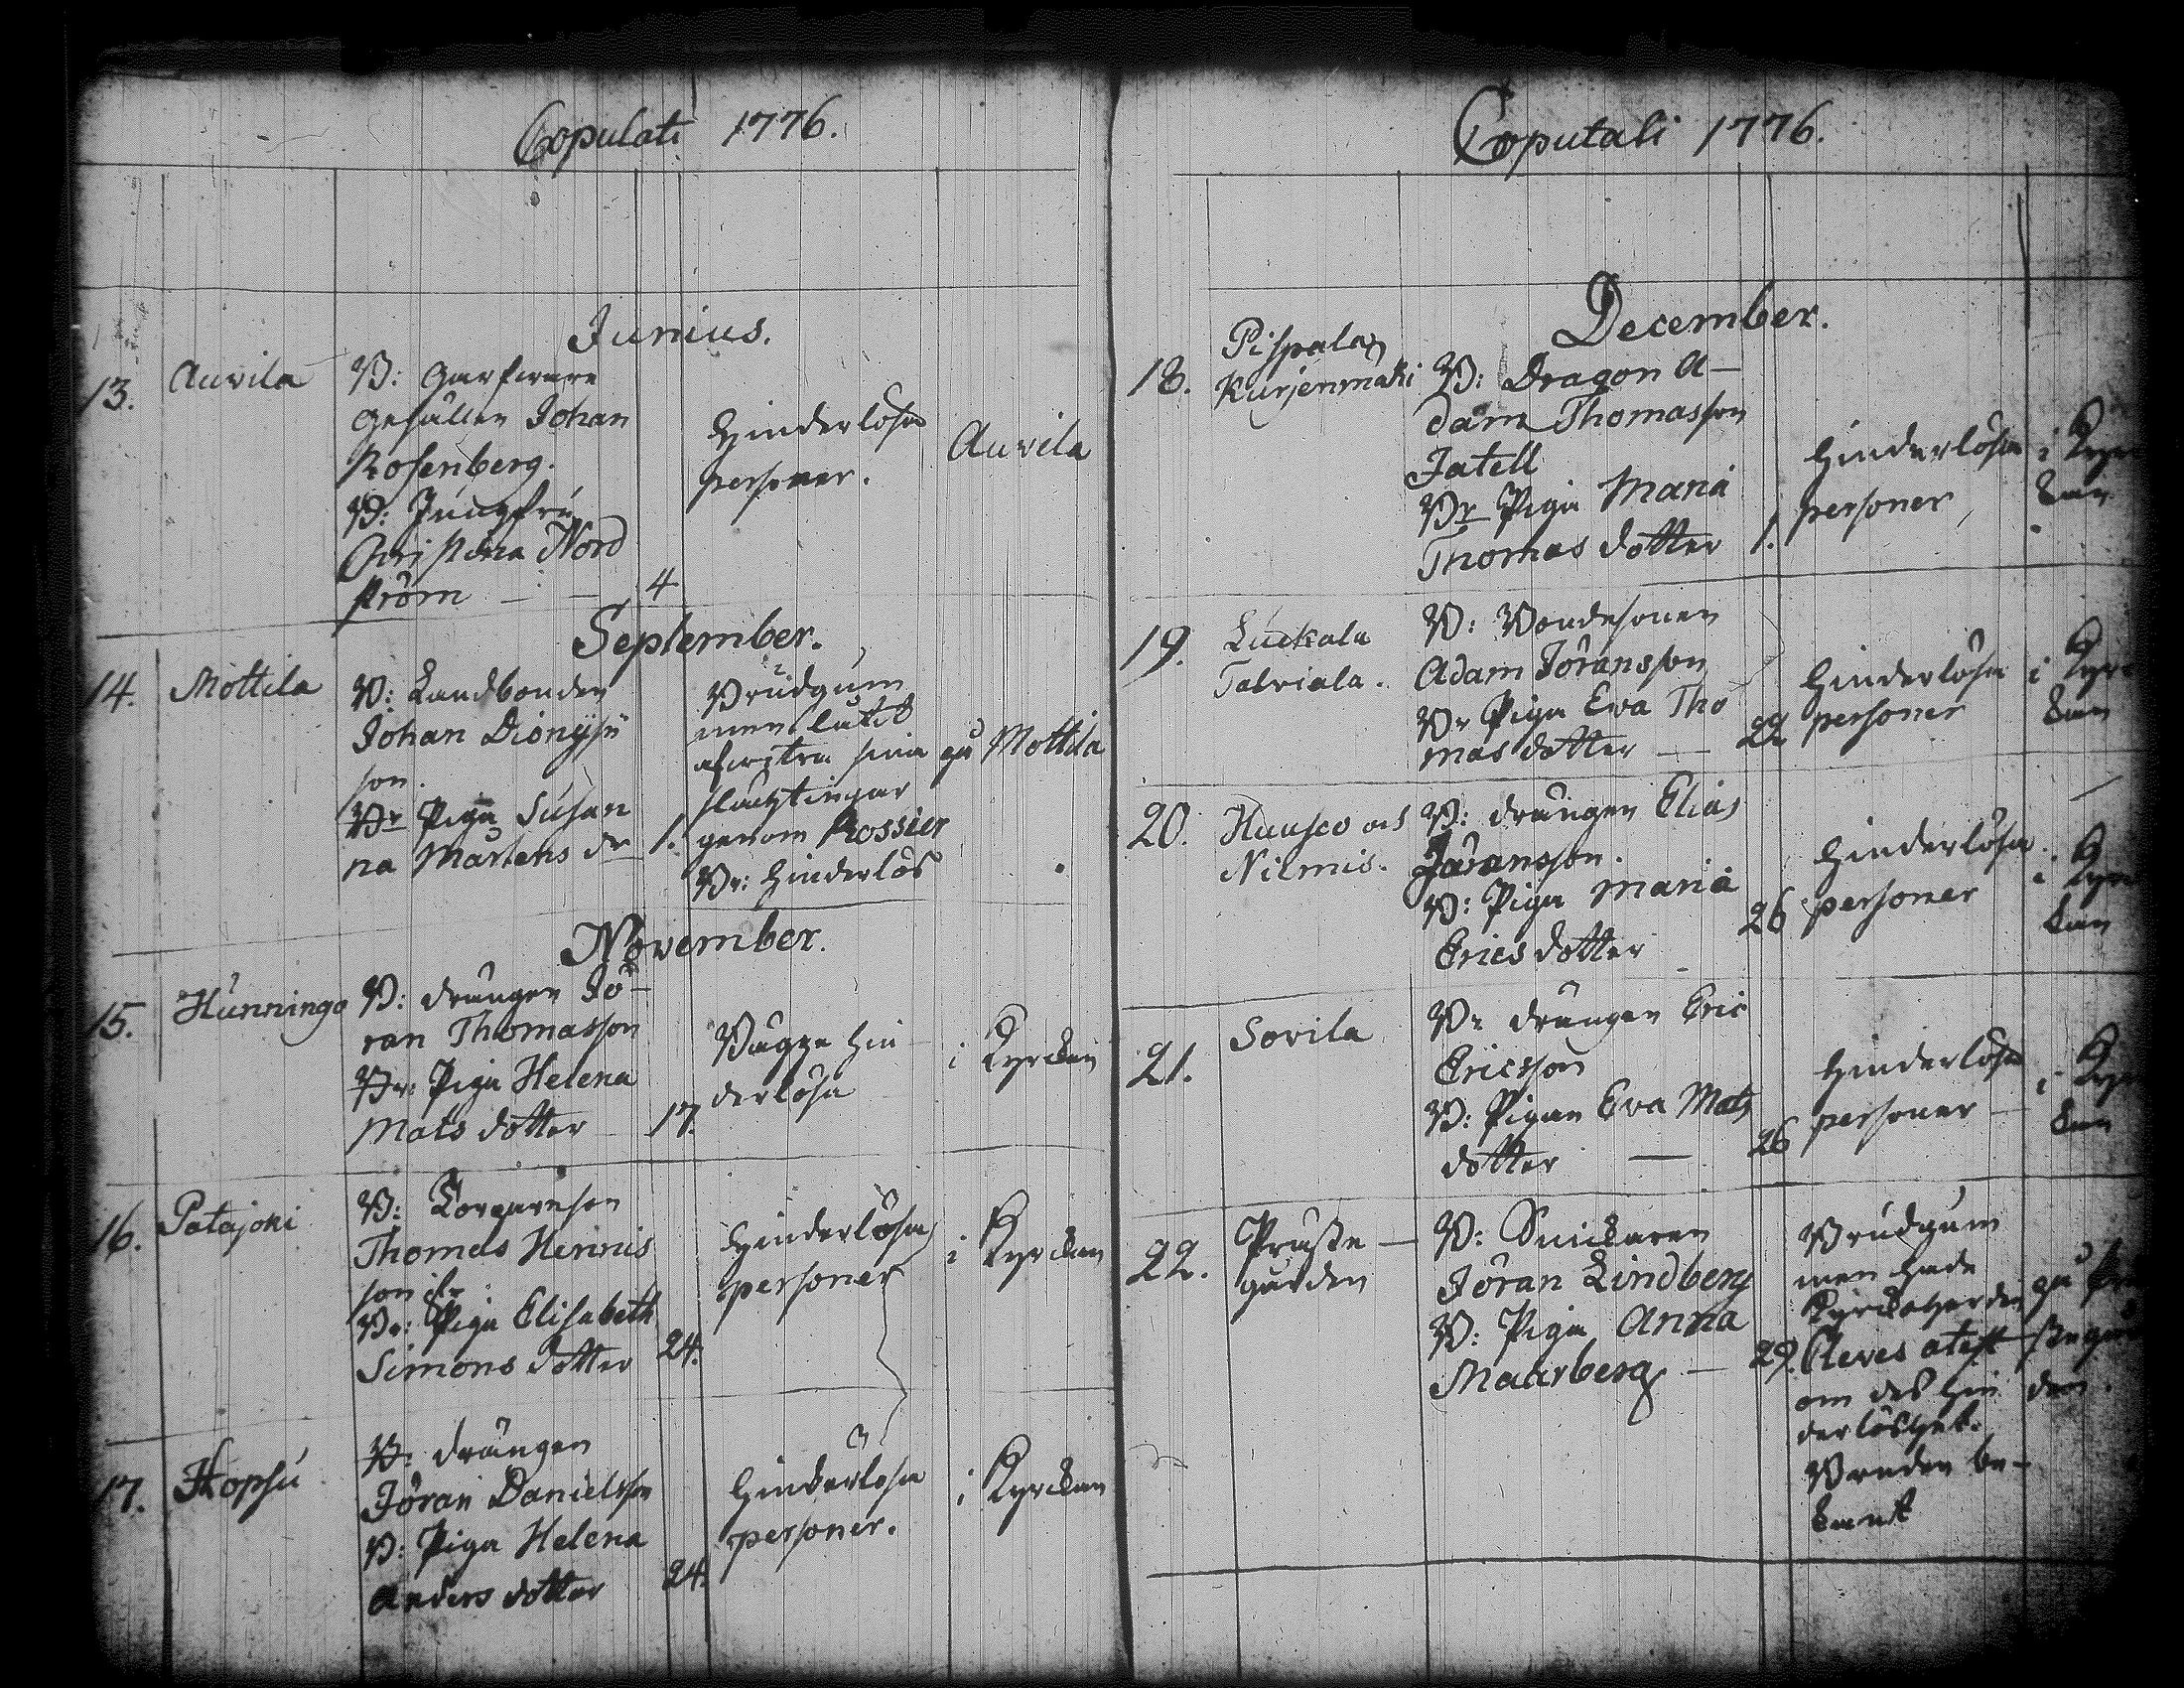 Copulati 1776.
Junius.
13. Auvila
B: Garfware
gesällen Johan
Rosenberg.
B: Jungfru
Christina Nord
ström — — 4
Hinderlösa
personer.
Auvila
September.
14. Mottila
B: Landbonden
Johan Dionysii
son.
Br Piga Susan
na Mårtens dr 1.
Brudgum
men låtit
afwittra sina
slächtingar
genom Rossier
Br: Hinderlös
på Mottila
November.
15. Hunningo
B: drängen Jö-
ran Thomasson
Br: Piga Helena
Mats dotter 17.
Bägge hin
derlösa
i Kyrckan
16. Patajoki
B:
Thomas Hennis
son
Br: Piga Elisabeth
Simons dotter 24.
Hinderlösa
personer
i Kyrckan
17. Hopsu
B: drängen
Jöran Danielsson
B: Piga Helena
Anders dotter 24.
Hinderlösa
personer.
i Kyrckan
Copulati 1776.
December.
18. Pispala
Kurjenmäki
B: Dragon A-
dam Thomasson
Jatell
Br Piga Maria
Thomas dotter 1.
Hinderlösa
personer
i Kyrc
kan
19. Luckala
Talviala.
B: Bondesonen
Adam Jöransson
Br Piga Eva Tho
mas dotter — 22
Hinderlösa
personer
i Kyrc
kan
20. Huusco och
Nilmis.
B: drängen Elias
Jöransson.
B: Piga Maria
Erics dotter 26
Hinderlösa
personer
i Kyrc
kan
21. Sovila
Br drängen Eric
Ericsson
B: Pigan Eva Mats
dotter — 26
Hinderlösa
personer —
i Kyrc
kan
22. Präste —
gården
B: Snickaren
Jöran Lindberg
B: Piga Anna
Maarberg — 29.
Brudgum
men hade
Kyrckoherden
Cleves atest
om des hin
derlöshet.
Bruden be-
kant
på Prä
stegår
den.